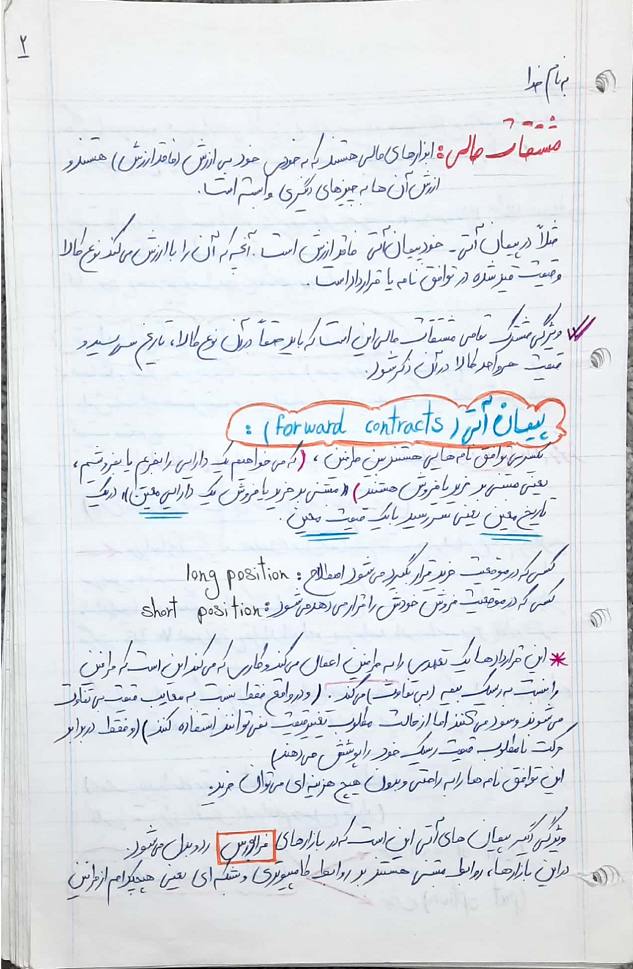 ۲
به نام خدا
مشتقات مالی : ابزارهای مالی هستند که به خودی خود بی ارزش (فاقد ارزش) هستند و
ارزش آن ها به چیزهای دیگری وابسته است.
مثلاً در پیمان آتی - خود پیمان آتی فاقد ارزش است. آنچه که آن را با ارزش می کند نوع کالا
و قیمت قید شده در توافق نامه یا قرارداد است.
ویژگی مشترک تمامی مشتقات مالی این است که باید حتماً در آن نوع کالا، تاریخ سررسید و
قیمت هر واحد کالا در آن ذکر شود.
پیمان آتی (forward contracts) :
یکسری توافق نامه هایی هستند بین طرفین ، (که می خواهیم یک دارایی را بخریم یا بفروشیم ،
یعنی مبتنی بر خرید یا فروش هستند) «مبتنی بر خرید یا فروش یک دارایی معین» در یک
تاریخ معین یعنی سررسید با یک قیمت معین.
کسی که در موقعیت خرید قرار بگیرد می شود اصطلاح : long position
کسی که در موقعیت فروش خودش را قرار می دهد می شود : short position
* این قراردادها یک تعهدی را به طرفین اعمال می کند و کاری که می کند این است که طرفین
را نسبت به ریسک بیمه (بی تفاوت) می کند. (و در واقع فقط نسبت به معایب قیمت بی تفاوت
می شوند و سود می کنند اما از حالت مطلوب تغییر قیمت نمی توانند استفاده کنند) (و فقط در برابر
حرکت نامطلوب قیمت ریسک خود را پوشش می دهند)
این توافق نامه ها را به راحتی و بدون هیچ هزینه ای می توان خرید.
ویژگی دیگر پیمان های آتی این است که در بازارهای فرابورس رد و بدل می شود.
در این بازارها، روابط مبتنی هستند بر روابط کامپیوتری و شبکه ای یعنی هیچکدام از طرفین